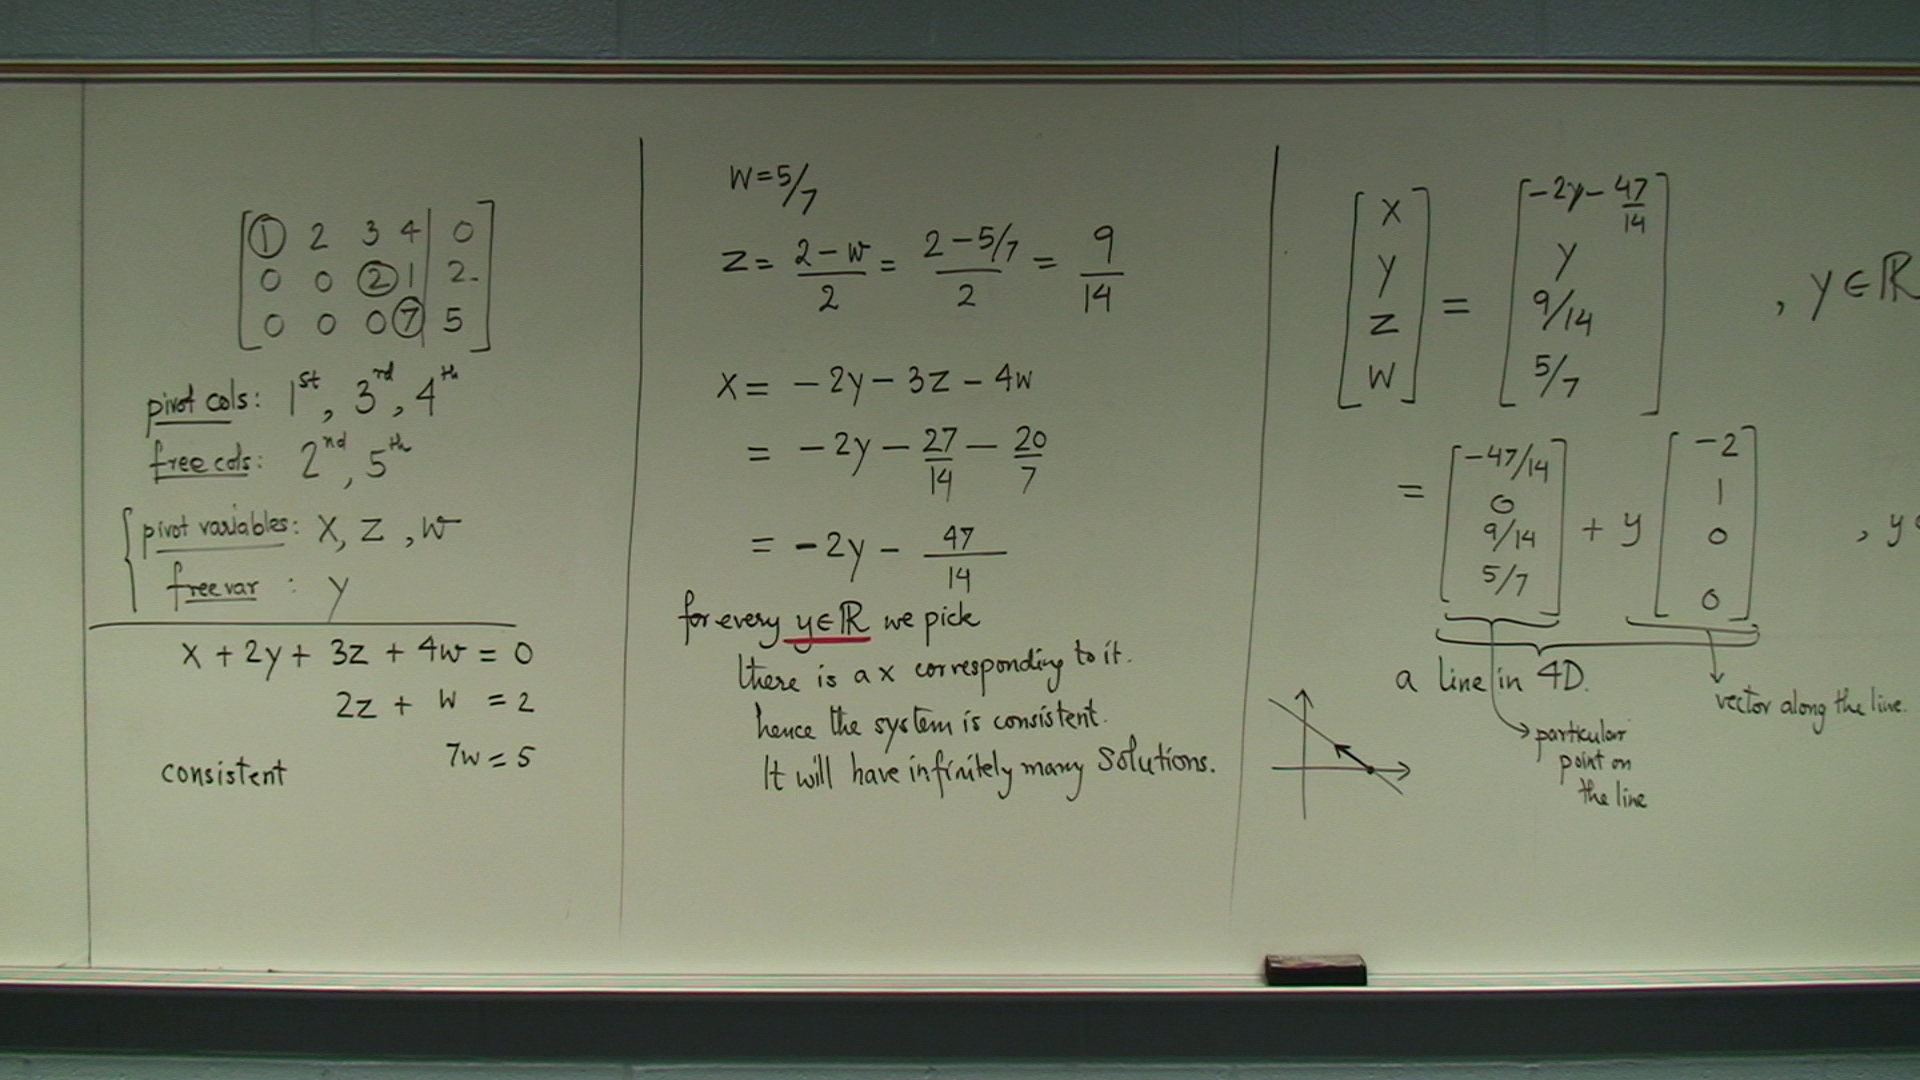 1 2 3 4 | 0
0 0 2 1 | 2
0 0 0 7 | 5
pivot cols: 1st, 3rd, 4th
free cols: 2nd, 5th
pivot variables: x, z, w
free var : y
x + 2y + 3z + 4w = 0
2z + w = 2
7w = 5
consistent
w = 5/7
z = (2 - w)/2 = (2 - 5/7)/2 = 9/14
x = - 2y - 3z - 4w
= - 2y - 27/14 - 20/7
= - 2y - 47/14
for every y ∈ ℝ we pick
there is a x corresponding to it.
hence the system is consistent.
It will have infinitely many solutions.
[x y z w] = [-2y - 47/14 y 9/14 5/7] , y ∈ ℝ
= [-47/14 0 9/14 5/7] + y [-2 1 0 0] , y
a line in 4D.
vector along the line.
particular
point on
the line